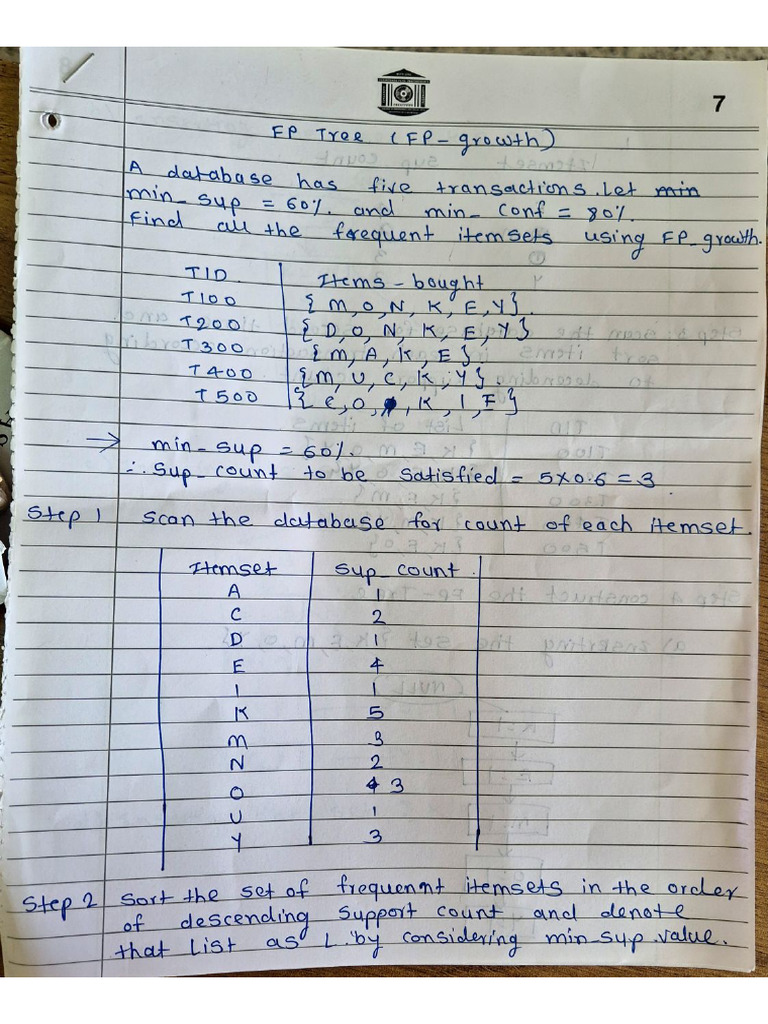 7
FP Tree (FP-growth)
A database has five transactions. Let min
min_sup = 60%. and min_conf = 80%.
Find all the frequent itemsets using FP_growth.
TID Items-bought
T100 {M,O,N,K,E,Y}.
T200 {D,O,N,K,E,Y}
T300 {M,A,K,E}
T400 {M,U,C,K,Y}.
T500 {C,O,K,I,E}
→ min_sup = 60%.
∴ Sup_count to be satisfied = 5x0.6 = 3
Step 1 Scan the database for count of each itemset.
Itemset Sup_count.
A 1
C 2
D 1
E 4
I 1
K 5
M 3
N 2
O 4 3
U 1
Y 3
Step 2 Sort the set of frequennt itemsets in the order
of descending support count and denote
that list as L. by considering min_sup value.